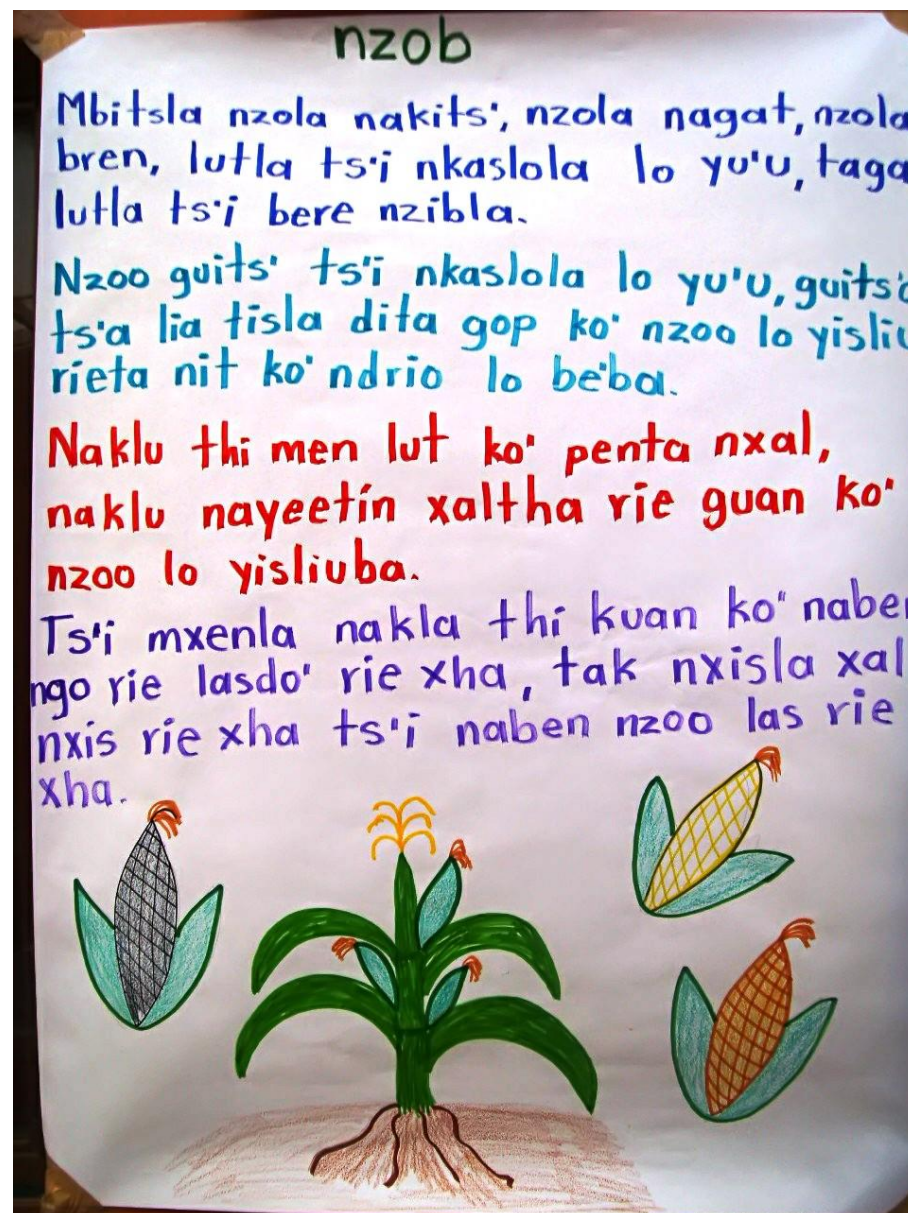 nzob
Mbitsla nzola nakits', nzola nagat, nzola
bren, lutla ts'i nkaslola lo yu'u, taga
lutla ts'i bere nzibla.
Nzoo guits' ts'i nkaslola lo yu'u, guits'a
ts'a lia tisla dita gop ko' nzoo lo yisliu
rieta nit ko' ndrio lo be'ba.
Naklu thi men lut ko' penta nxal,
naklu nayeetín xaltha rie guan ko'
nzoo lo yisliuba.
Ts'i mxenla nakla thi kuan ko" naben
ngo rie lasdo' rie xha, tak nxisla xal
nxis rie xha ts'i naben nzoo las rie
xha.